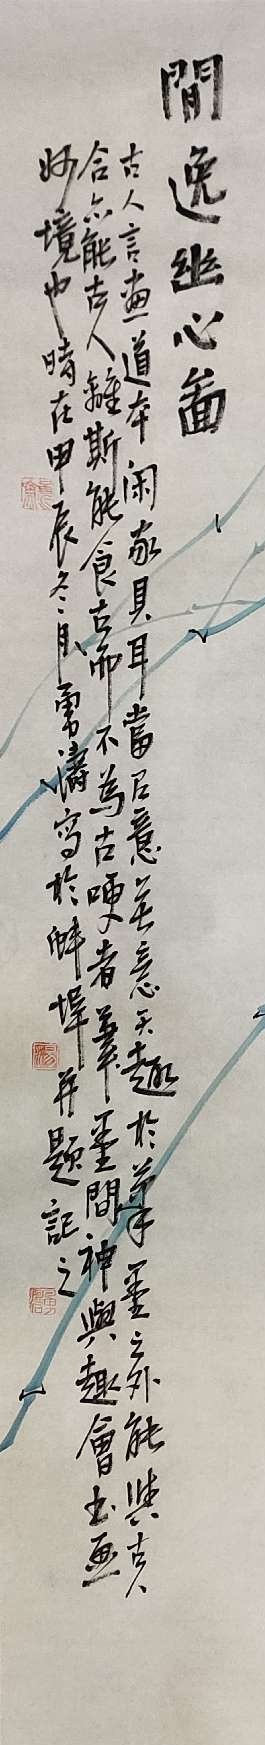 閒逸幽心圖
古人言畫道本閑家具耳當以意無意天趣於筆墨之外能與古人
合亦能古人離斯能食古而不為古哽者筆墨間神與趣會書畫
妙境也時在甲辰冬月勇濤寫於蚌埠并題記之